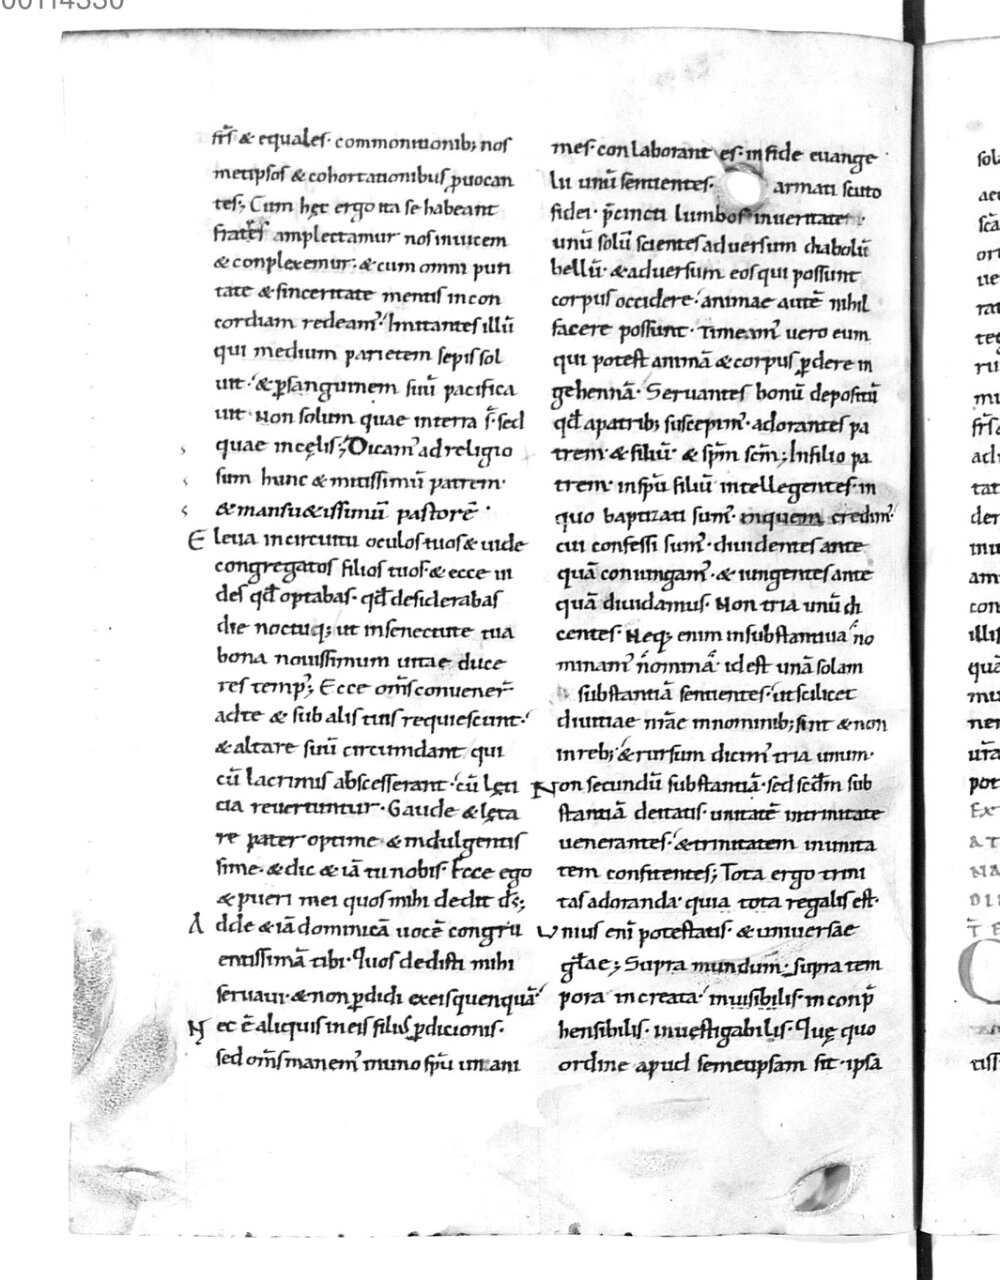 00114330
fr̄s & equales· commonitionib; nos
metipsos & cohortationibus ꝓuocan
tes; Cum hęc ergo ita se habeant
fratres amplectamur nos inuicem
& conplexemur· & cum omni puri
tate & sinceritate mentis in con
cordiam redeam᾿· Imitantes illū
qui medium parietem sepis sol
uit· & ꝑ sanguinem suū pacifica
uit· Non solum quae in terra s̄· sed
quae in cęlis; Dicam᾿ ad religio
sum hunc & mitissimū patrem·
& mansu&issimū pastorē·
Eleua in circuitu oculos tuos & uide
congregatos filios tuos· & ecce ui
des qđ optabas· qđ desiderabas
die noctuq; ut in senectute tua
bona nouissimum uitae duce
res temp᾿; Ecce om̄s conuener̄
ad te & sub alis tuis requiescunt·
& altare suū circumdant qui
cū lacrimis abscesserant· cū lęti
cia reuertuntur· Gaude & lęta
re pater optime & indulgentis
sime· & dic & iā tu nobis· Ecce ego
& pueri mei quos mihi dedit d̄s;
Adde & iā dominicā uocē congru
entissimā tibi· Quos dedisti mihi
seruaui· & non ꝑdidi ex eis quenquā·
Nec ē aliquis in eis filius ꝑdicionis·
sed om̄s manem᾿ in uno sp̄u unani
mes conlaborantes· in fide euange
lii unū sentientes· armati scuto
fidei· p̄cincti lumbos in ueritate·
unū solū scientes aduersum diabolū
bellū· & aduersum eos qui possunt
corpus occidere· animae autē nihil
facere possunt· Timeam᾿ uero eum
qui potest animā & corpus ꝑdere in
gehennā· Seruantes bonū depositū
qđ a patrib; suscepim᾿· adorantes pa
trem· & filiū· & sp̄m sc̄m; In filio pa
trem· in sp̄u filiū intellegentes· in
quo baptizati sum᾿· in quem credim᾿·
cui confessi sum᾿· diuidentes ante
quā coniungam᾿· & iungentes ante
quā diuidamus· Non tria unū di
centes· Neq; enim insubstantiua no
minam᾿ nomina· id est unā solam
substantiā sentientes· ut scilicet
diuitiae mae in nominib; sint & non
in reb;· & rursum dicim᾿ tria unum·
Non secundū substantiā· sed scd̄m sub
stantiā deitatis· unitatē in trinitate
uenerantes· & trinitatem in unita
tem confitentes; Tota ergo trini
tas adoranda· quia tota regalis est·
Unius eni potestatis· & uniuersae
głae; Supra mundum· supra tem
pora increata· inuisibilis· inconp̄
hensibilis· inuestigabilis· Quę quo
ordine apud semetipsam sit· ipsa